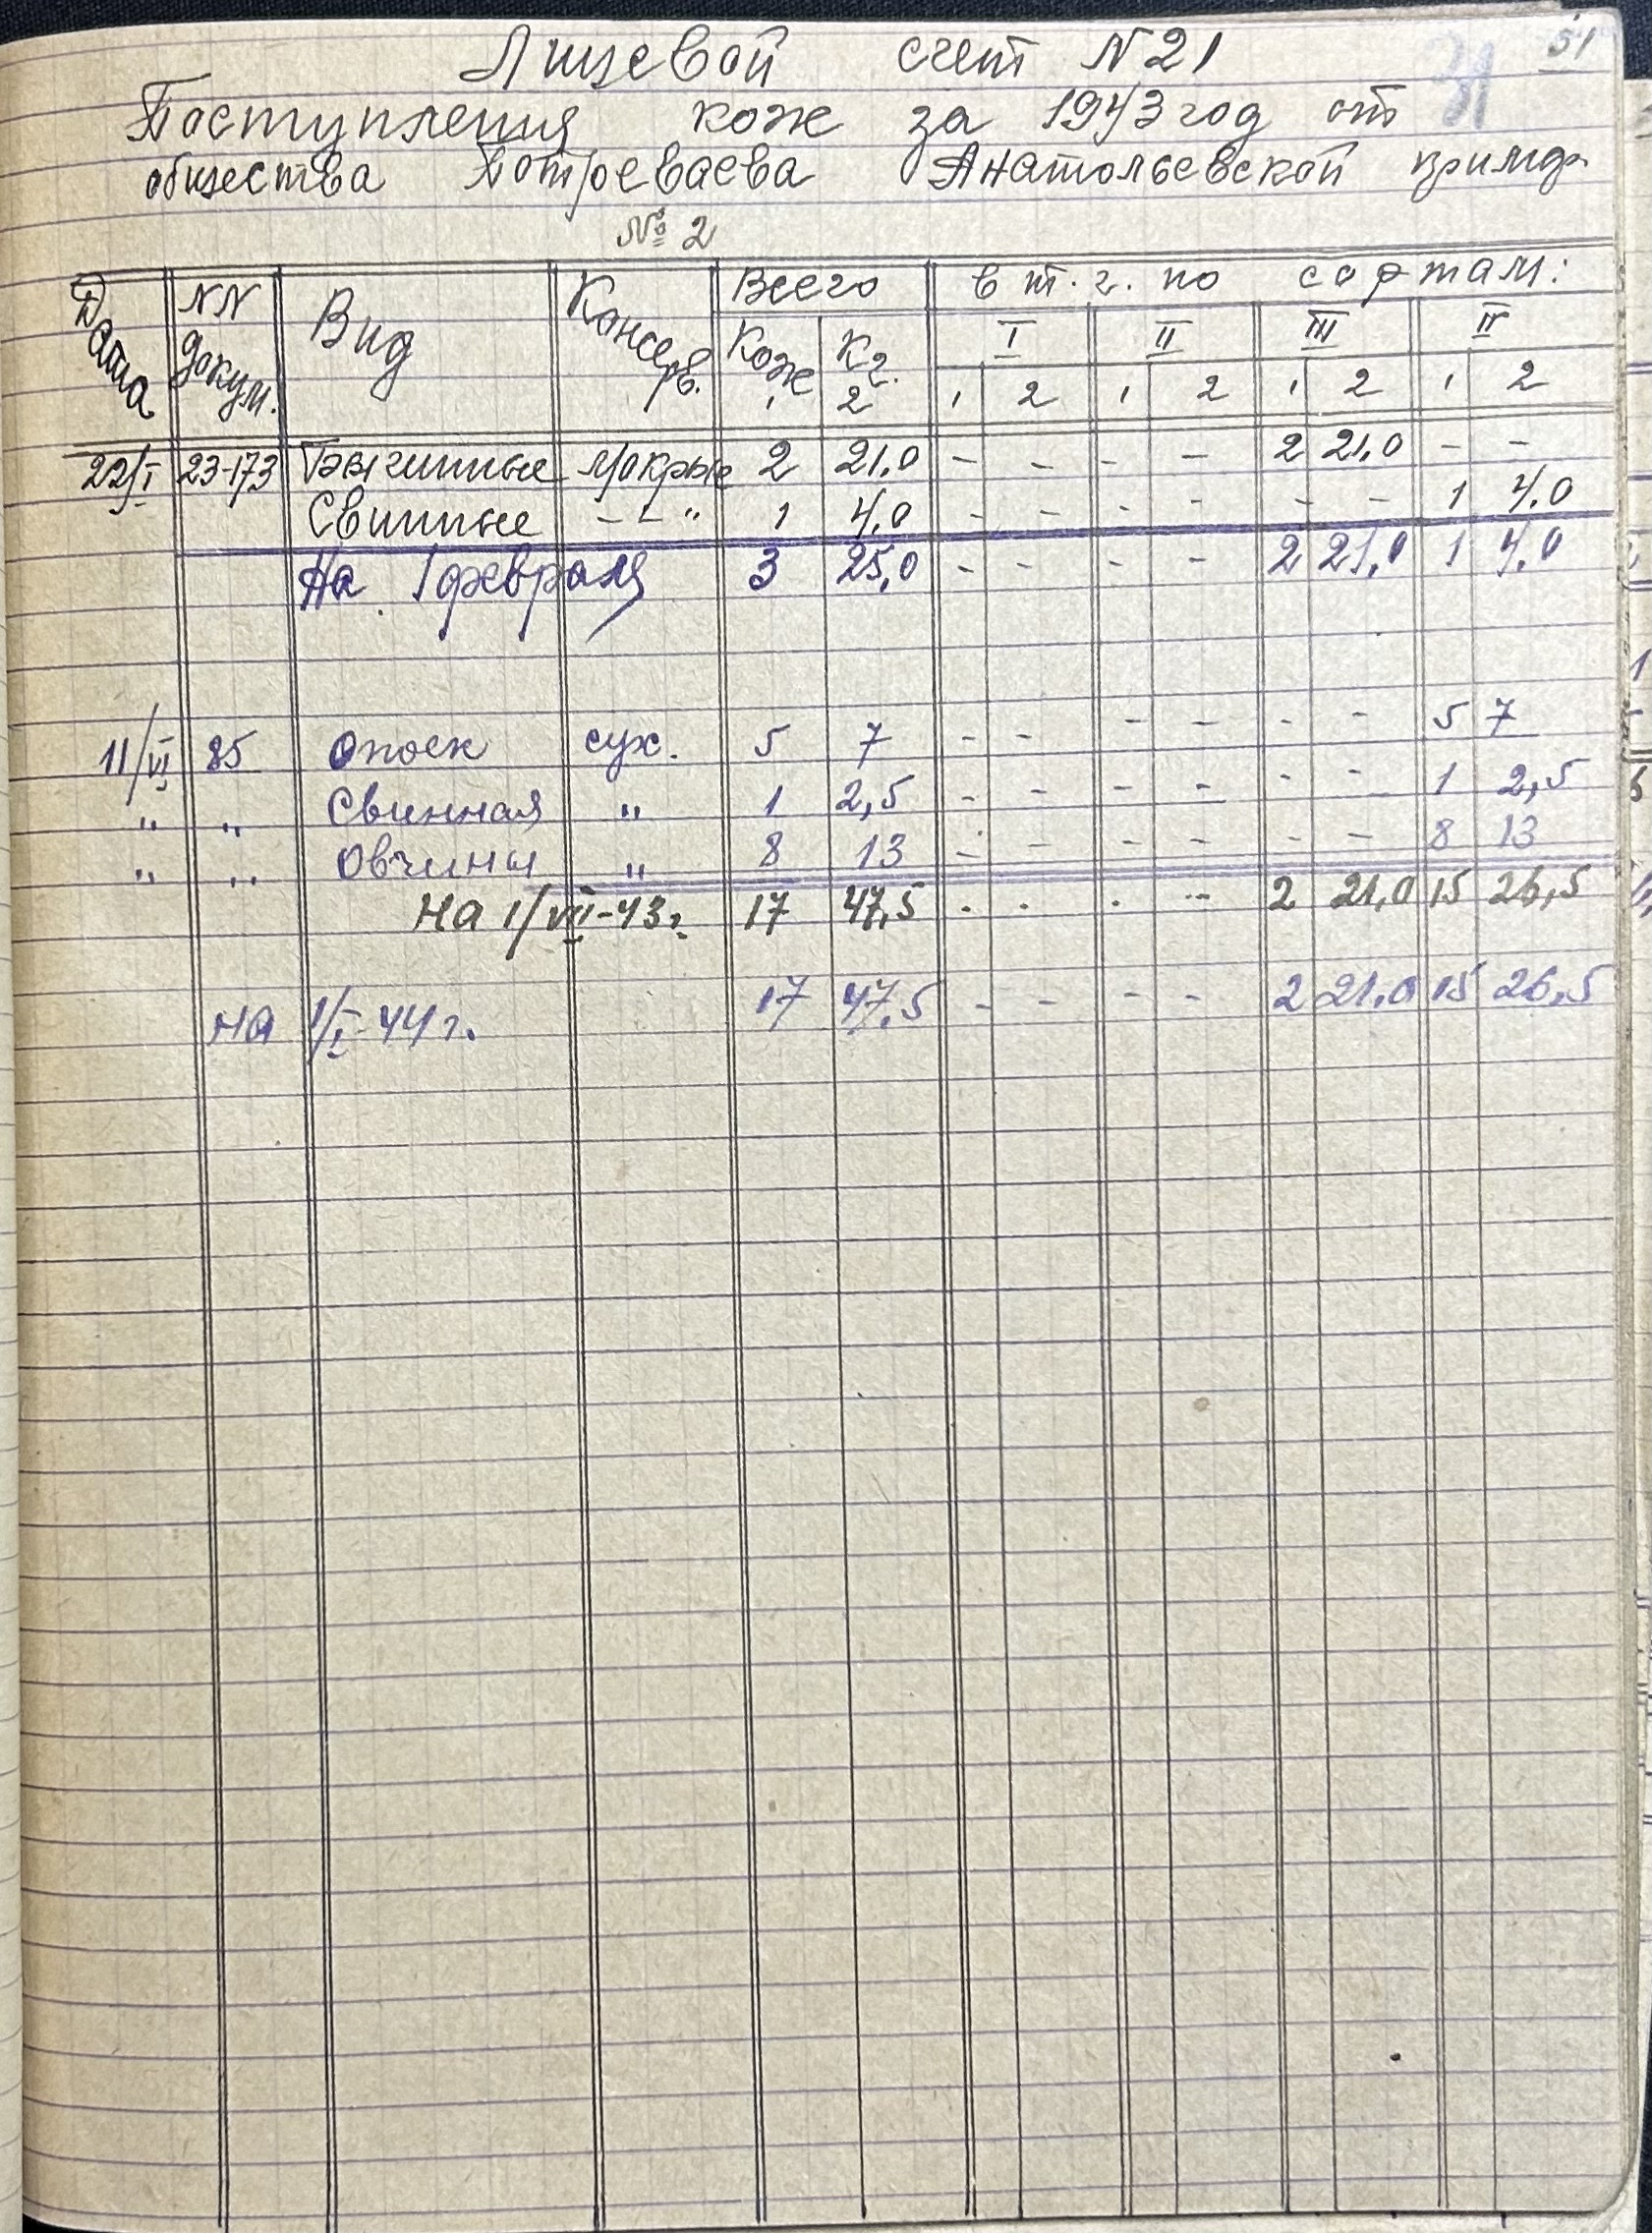 51
31
Лицевой счет N 21
Поступления коже за 1943 год от
общества Потреваева Анатольевской примар.
№ 2
Дата NN докум. Вид Консерв. Всего в т. г. по сортам:
Кож Кг. I II III IV
1 2 1 2 1 2 1 2 1 2
22/I 23-173 Бычинные мокрые 2 21.0 - - - - 2 21,0 - -
Свинные - - " 1 4,0 - - - - - - 1 4.0
На 1 февраля 3 25,0 - - - - 2 21,0 1 4,0
11/VI 85 Опоек сух. 5 7 - - - - - - 5 7
" " Свинная " 1 2,5 - - - - - - 1 2,5
" " Овчины " 8 13 - - - - - - 8 13
На 1/VII-43 г. 17 47,5 - - - - 2 21,0 15 26,5
на 1/I-44 г. 17 47.5 - - - - 2 21.0 15 26,5